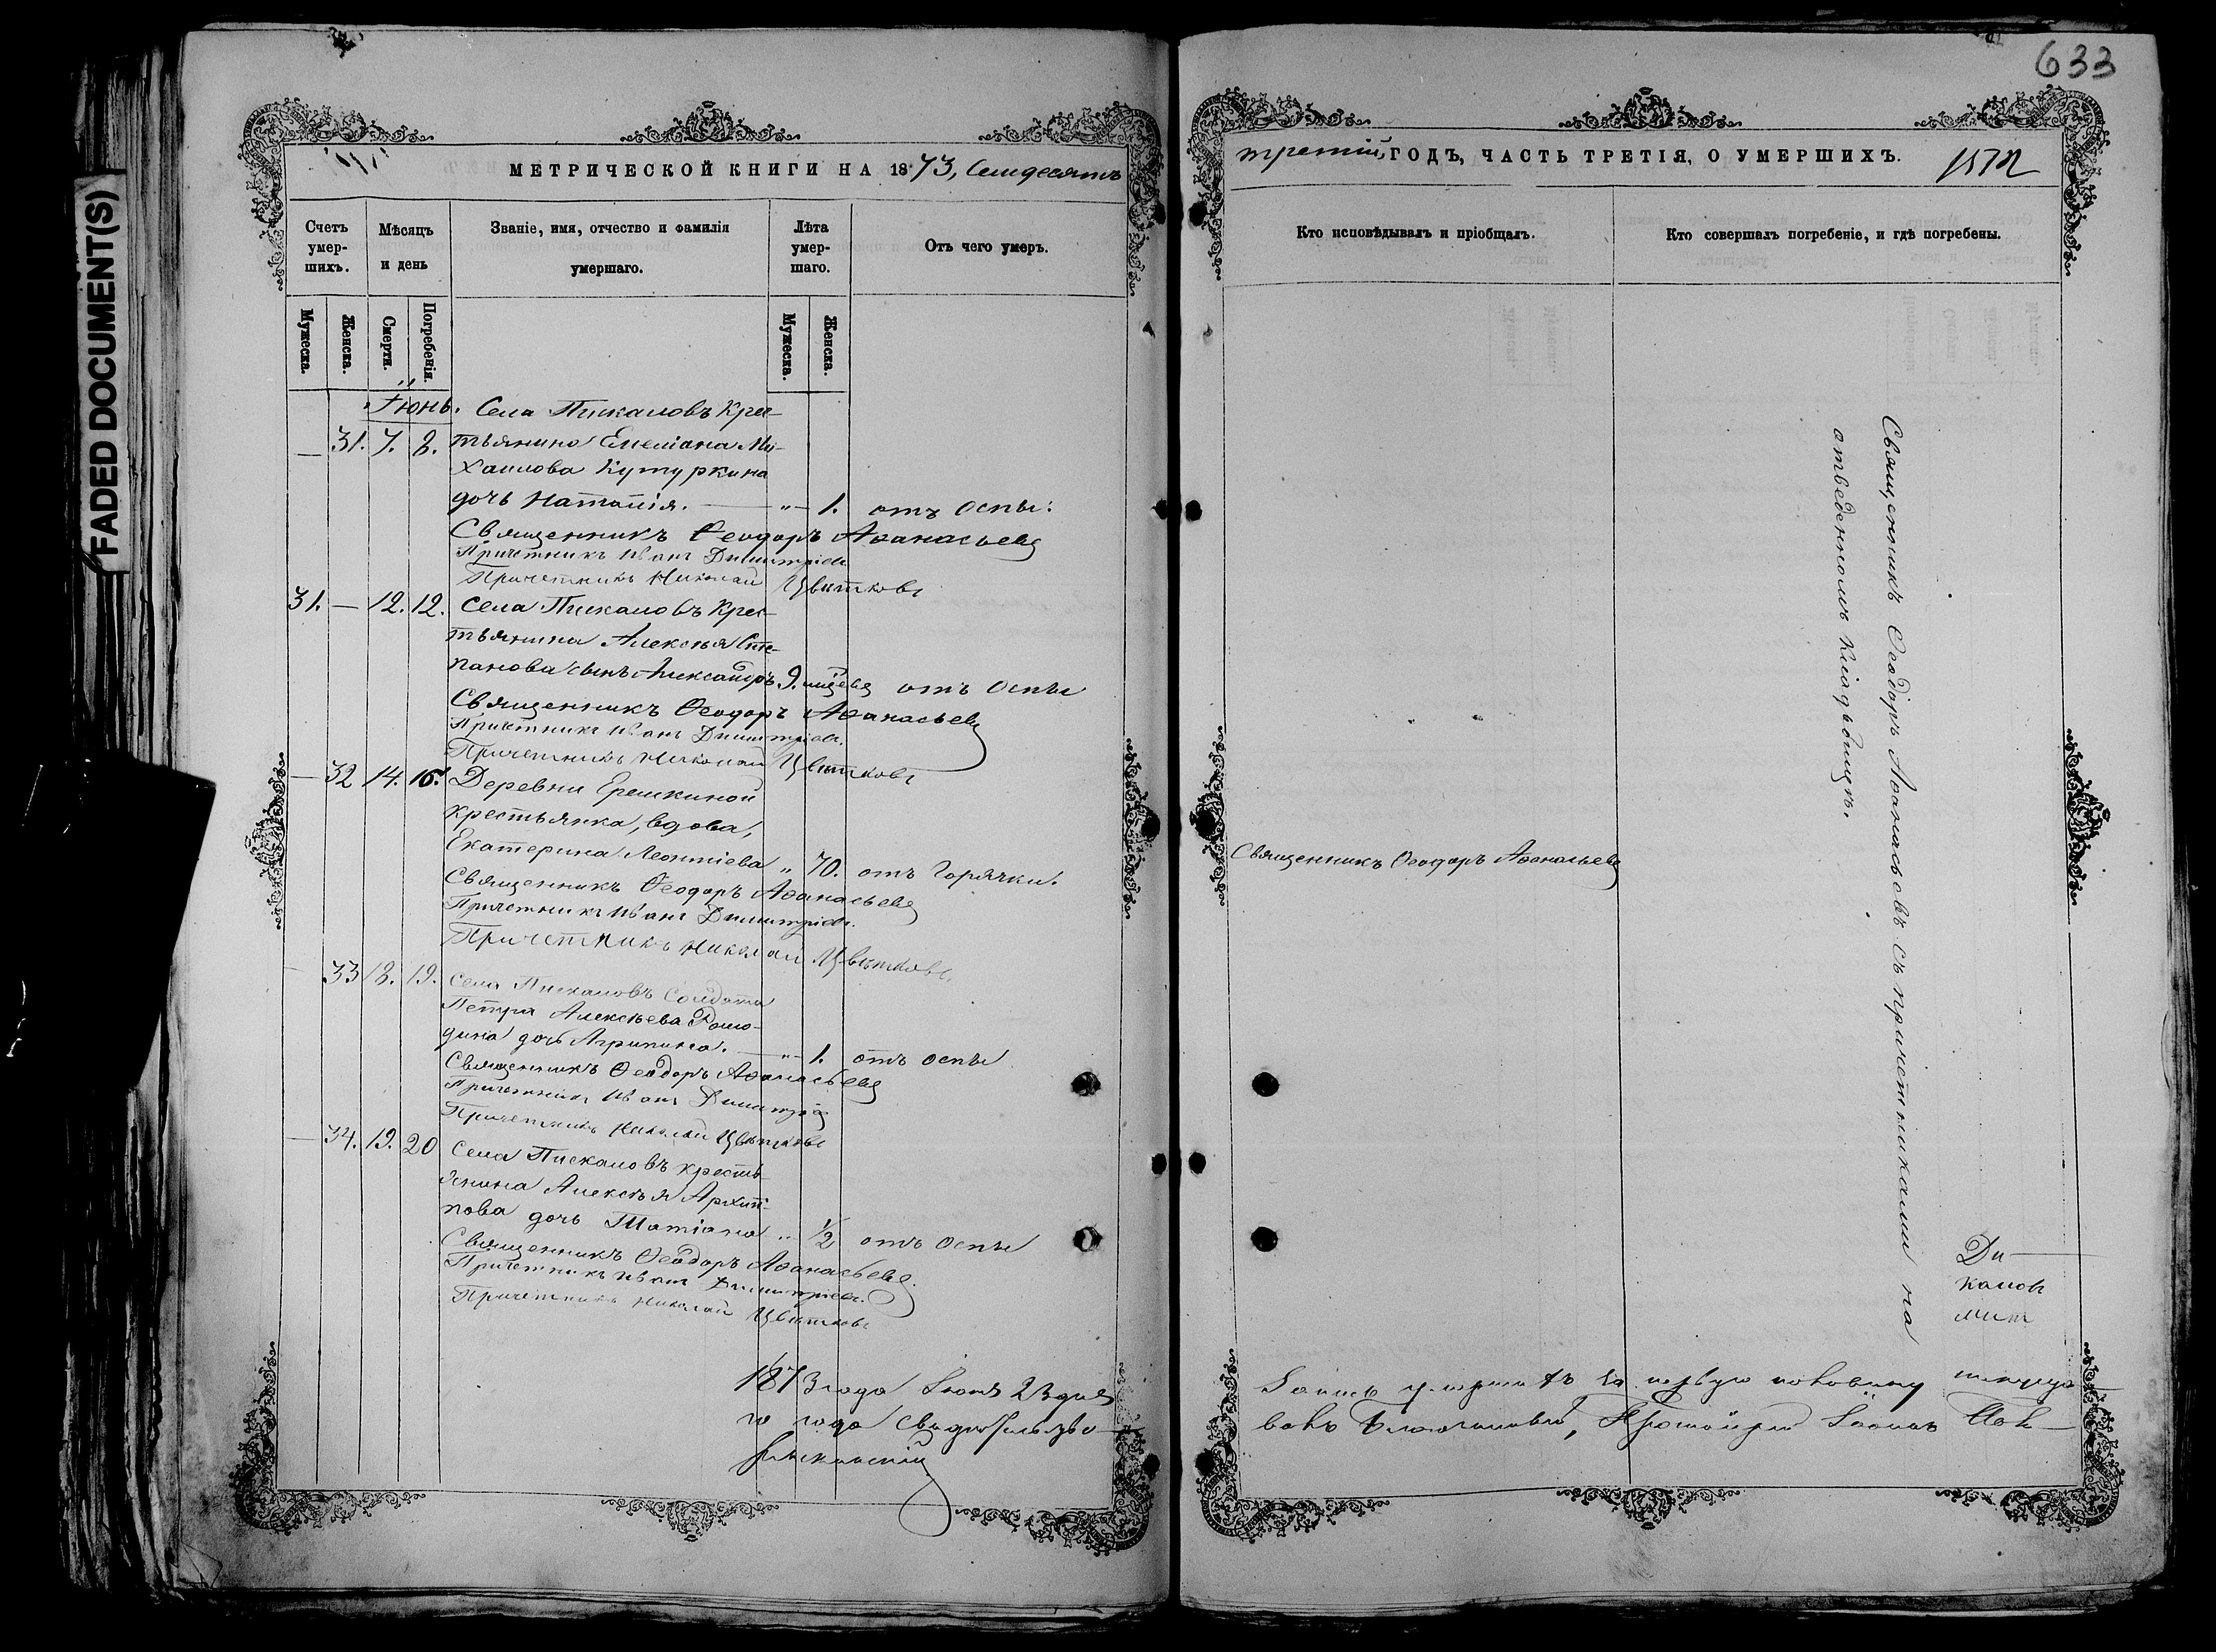 FADED DOCUMENT(S)
МЕТРИЧЕСКОЙ КНИГИ НА 1873, Семидесятъ
Счетъ умер-шихъ.
Мѣсяцъ и день
Званіе, имя, отчество и фамилія умершаго.
Лѣта умер-шаго.
Отъ чего умеръ.
Мужеска.
Женска.
Смерти.
Погребенія.
Мужеска.
Женска.
Іюнь. Села Пискаловъ Крес-
— 31. 7. 8. тьянина Емеліана Ми-
хаилова Кутуркина
дочь Наталія. — „ — 1. отъ оспы.
Священникъ Ѳеодоръ Аѳанасьевъ
Причетникъ Иванъ Димитріевъ
Причетникъ Николай Цвѣтковъ
31. — 12. 12. Села Пискаловъ Крес-
тьянина Алексѣя Сте-
панова сынъ Александръ 9. мѣсяцевъ отъ Оспы
Священникъ Ѳеодоръ Аѳанасьевъ
Причетникъ Иванъ Димитріевъ.
Причетникъ Николай Цвѣтковъ
— 32 14. 16. Деревни Ерешкиной
крестьянка, вдова,
Екатерина Леонтіева „ 70. отъ Горячки.
Священникъ Ѳеодоръ Аѳанасьевъ
Причетникъ Иванъ Димитріевъ.
Причетникъ Николай Цвѣтковъ.
— 33 18. 19. Села Пискаловъ Солдата
Петра Алексѣева
дина дочь Агрипина. — „ — 1. отъ оспы
Священникъ Ѳеодоръ Аѳанасьевъ
Причетникъ Иванъ Димитріевъ
Причетникъ Николай Цвѣтковъ
— 34. 19. 20 Села Пискаловъ кресть-
янина Алексѣя Архип-
пова дочь Татіана „ 1/2 отъ Оспы
Священникъ Ѳеодоръ Аѳанасьевъ.
Причетникъ Иванъ Димитріевъ.
Причетникъ Николай Цвѣтковъ
1873 года Іюля 23 дня
го года свидѣтельство
633
третій, ГОДЪ, ЧАСТЬ ТРЕТІЯ, О УМЕРШИХЪ.
Кто исповѣдывалъ и пріобщалъ.
Кто совершалъ погребеніе, и гдѣ погребены.
Священникъ Ѳеодоръ Аѳанасьевъ
Священникъ Ѳеодоръ Аѳанасьевъ съ причетниками на
отведенномъ кладбищѣ.
Запись умершихъ за первую половину текуща-
валъ Благочинный, Протоіерей Іоаннъ